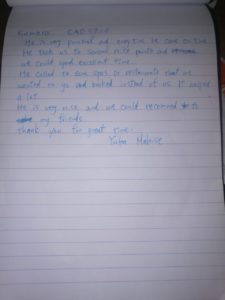 He is very punctual and every time he came on time.
He took us to several nice points and
we could spend excellent time.
He called to some spas or restaurants that we
wanted to go and booked instead of us. It helped
a lot.
He is very nice and we could recommend to
my friends.
Thank you for great time.